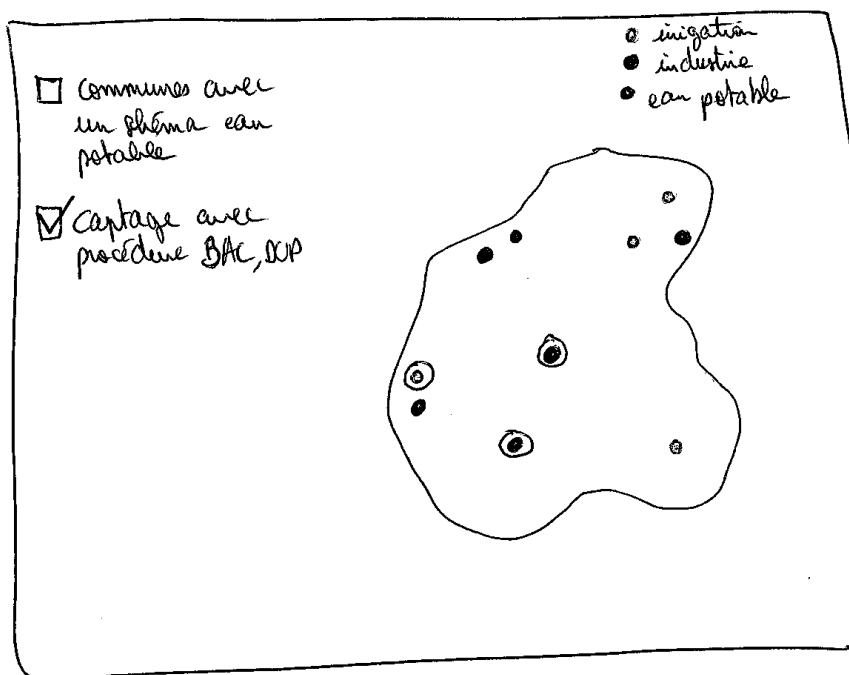 communes avec
un shéma eau
potable
captage avec
procédure BAC, DUP
irrigation
industrie
eau potable